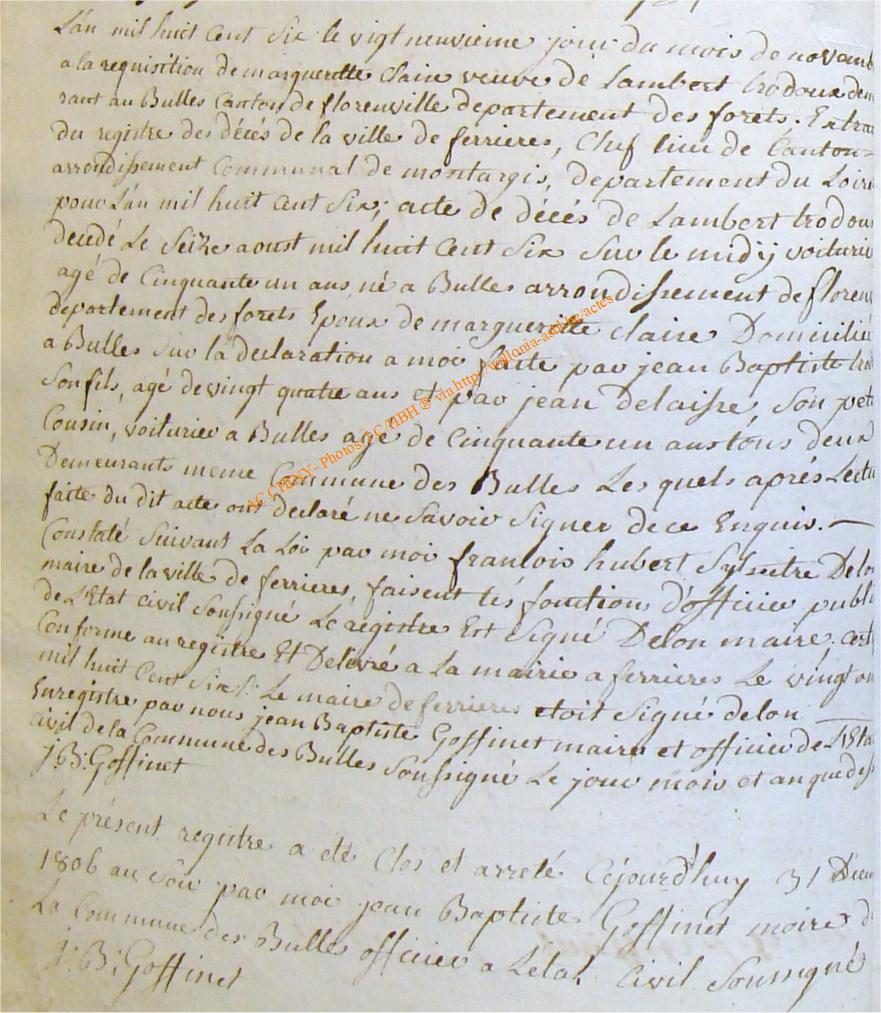 L'an mil huit cent six le vigt neuvieme jour du mois de novamb
a la requisition de marguerotte Claire veuve de Lambert trodoux dem
rant au Bulles Canton de florenville departement des forets. Extrai
du registre des décés de la ville de ferrieres, Chef lieu de Canton
arrondissement Communal de montargis, departement du Loire
pour L'an mil huit Cent Six; acte de décés de Lambert trodou
decedé Le Seize aoust mil huit Cent Six sur le midÿ voiturie
agé de Cinquante un ans né a Bulles arrondissement de floren
departement des forets Epoux de marguerotte Claire Domicilié
a Bulles Sur la declaration a moi faite par jean Baptiste tro
Son fils, agé de vingt quatre ans et par jean delaisse, Son peti
Cousin, voiturier a Bulles agé de Cinquante un ans tous deux
Demeurants meme Commune des Bulles Les quels aprés Lectu
faite du dit acte ont declaré ne Savoir Signer de ce Enquis.
Constaté Suivant La Loi par moi francois hubert Sylvestre Delon
maire de la ville de ferrieres, faisent les fonctions d'officier publi
de L'Etat Civil Soussigné Le registre Est Signé Delon maire, Cert
Conforme au registre Et Delivré a La mairie a ferrieres Le vingt
mil huit Cent Six /: Le maire de ferrieres etoit Signé delon
Enregistre par nous jean Baptiste Goffinet maire et officier de L'Eta
Civil de la Commune des Bulles Soussigné Le jour mois et an que des
J:B: Goffinet
Le présent registre a eté Clos et arreté Cejourd'huy 31 Decem
1806 au Soir par moi jean Baptiste Goffinet maire d
La Commune des Bulles officier a L'état Civil Soussigné
J:B: Goffinet
AC CHINY - Photos PC/HBH ® via http://wallonia-asbl.be/actes